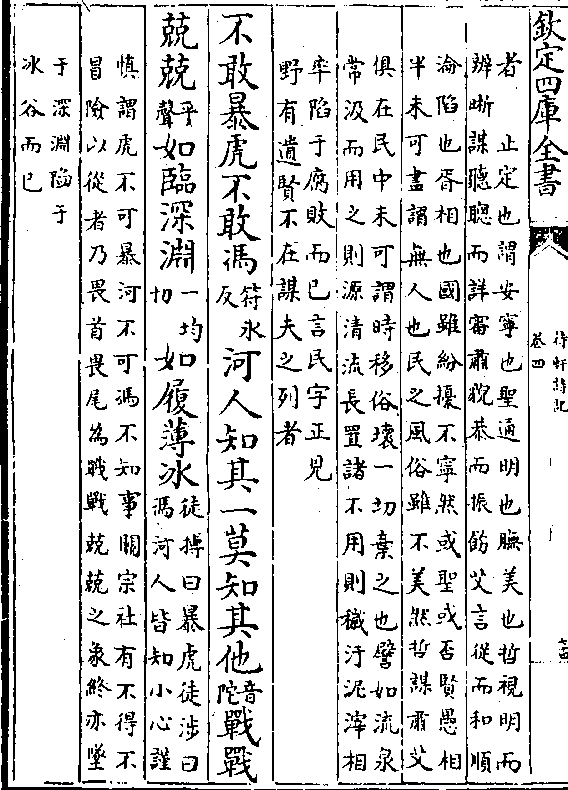 欽定四庫全書
待軒詩記
卷四
者止定也謂安寧也聖通明也膴美也哲視明而
辨晰謀聽聰而詳審肅貌恭而振飭艾言從而和順
淪陷也胥相也國雖紛擾不寧然或聖或否賢愚相
半未可盡謂無人也民之風俗雖不美然哲謀肅艾
俱在民中未可謂時移俗壞一切棄之也譬如流泉
常汲而用之則源清流長置諸不用則穢汙泥滓相
率陷于腐敗而已言民字正見
野有遺賢不在謀夫之列者
不敢暴虎不敢馮符氷反河人知其一莫知其他音陀戰戰
兢兢平聲如臨深淵一均切如履薄冰徒搏曰暴虎徒涉曰
馮河人皆知小心謹
慎謂虎不可暴河不可馮不知事關宗社有不得不
冒險以從者乃畏首畏尾為戰戰兢兢之象終亦墜
于深淵陷于
冰谷而已